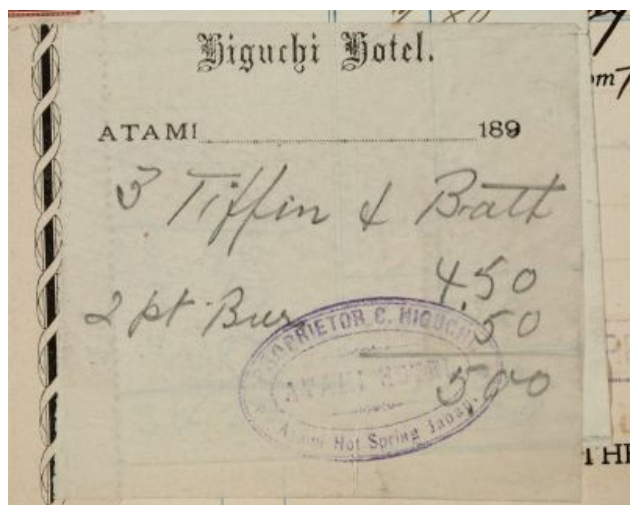 Higuchi Hotel.
ATAMI 189
3 Tiffin & Bath
4.50
2 pt. Bier .50
5.00
PROPRIETOR C. HIGUCHI
ATAMI HOTEL
Atami Hot Spring Japan.
om
THE